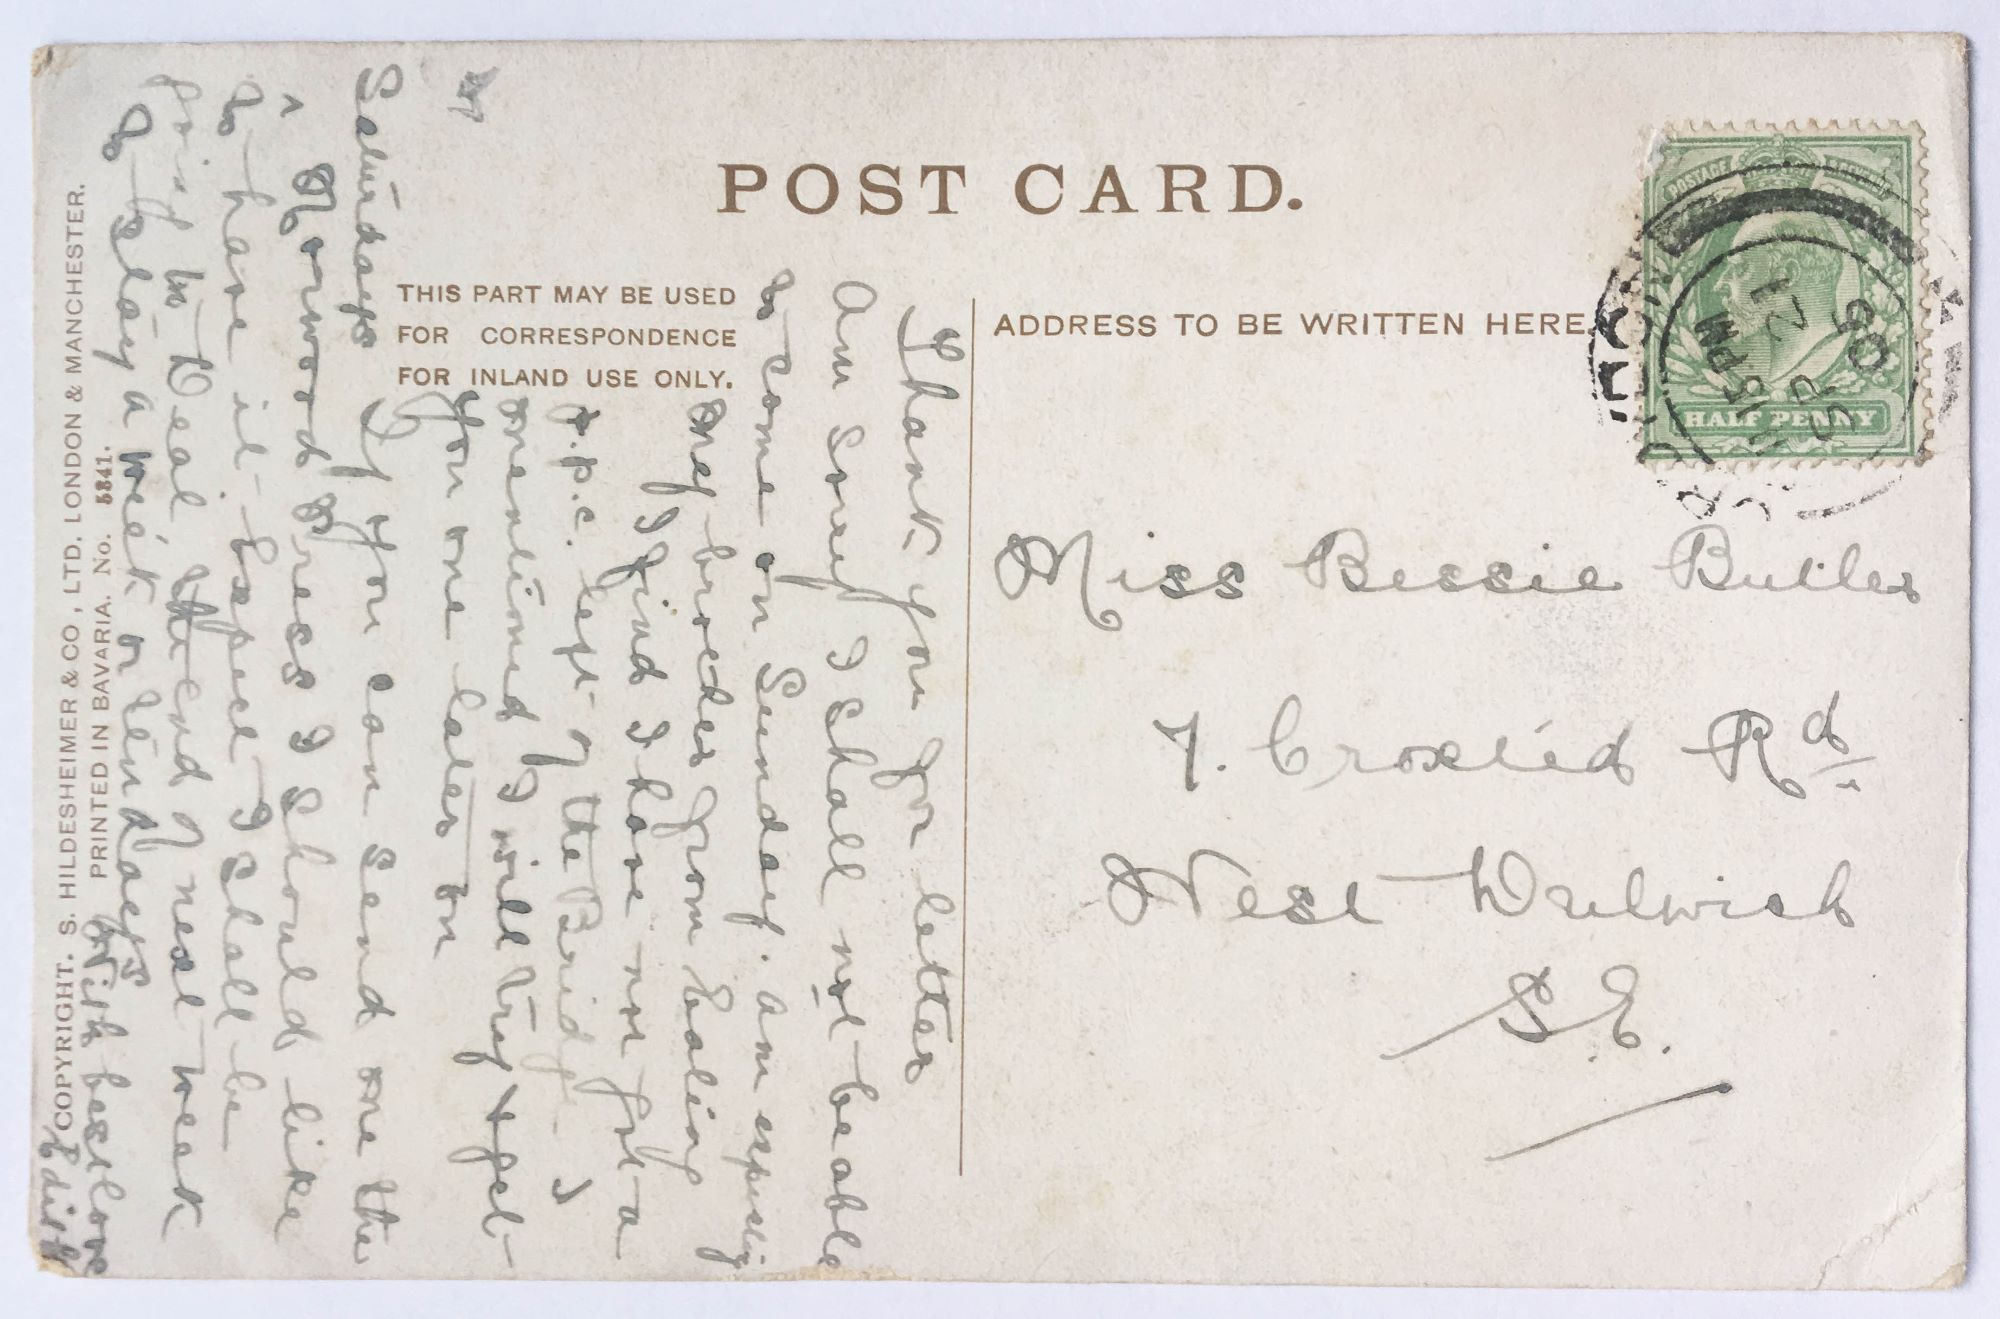 POST CARD.
THIS PART MAY BE USED
FOR CORRESPONDENCE
FOR INLAND USE ONLY.
ADDRESS TO BE WRITTEN HERE
HALF PENNY
15 PM
SP 21
05
Miss Bessie Butler
7. Croxted Rd.
West Dulwich
S.E.
Thank you for letter
Am sorry I shall not be able
to come on Sunday. am expecting
my brother from Ealing
I find I have not got a
p.p.c. left of the Bridge I
mentioned I will try & get
you one later on
If you can send me the
Saturdays
^ Norwood Press I should like
to have it I expect I shall be
going to Deal the end of next week
to stay a week or ten days
With best love
Edith
COPYRIGHT. S. HILDESHEIMER & CO, LTD. LONDON & MANCHESTER.
PRINTED IN BAVARIA. No. 5341.